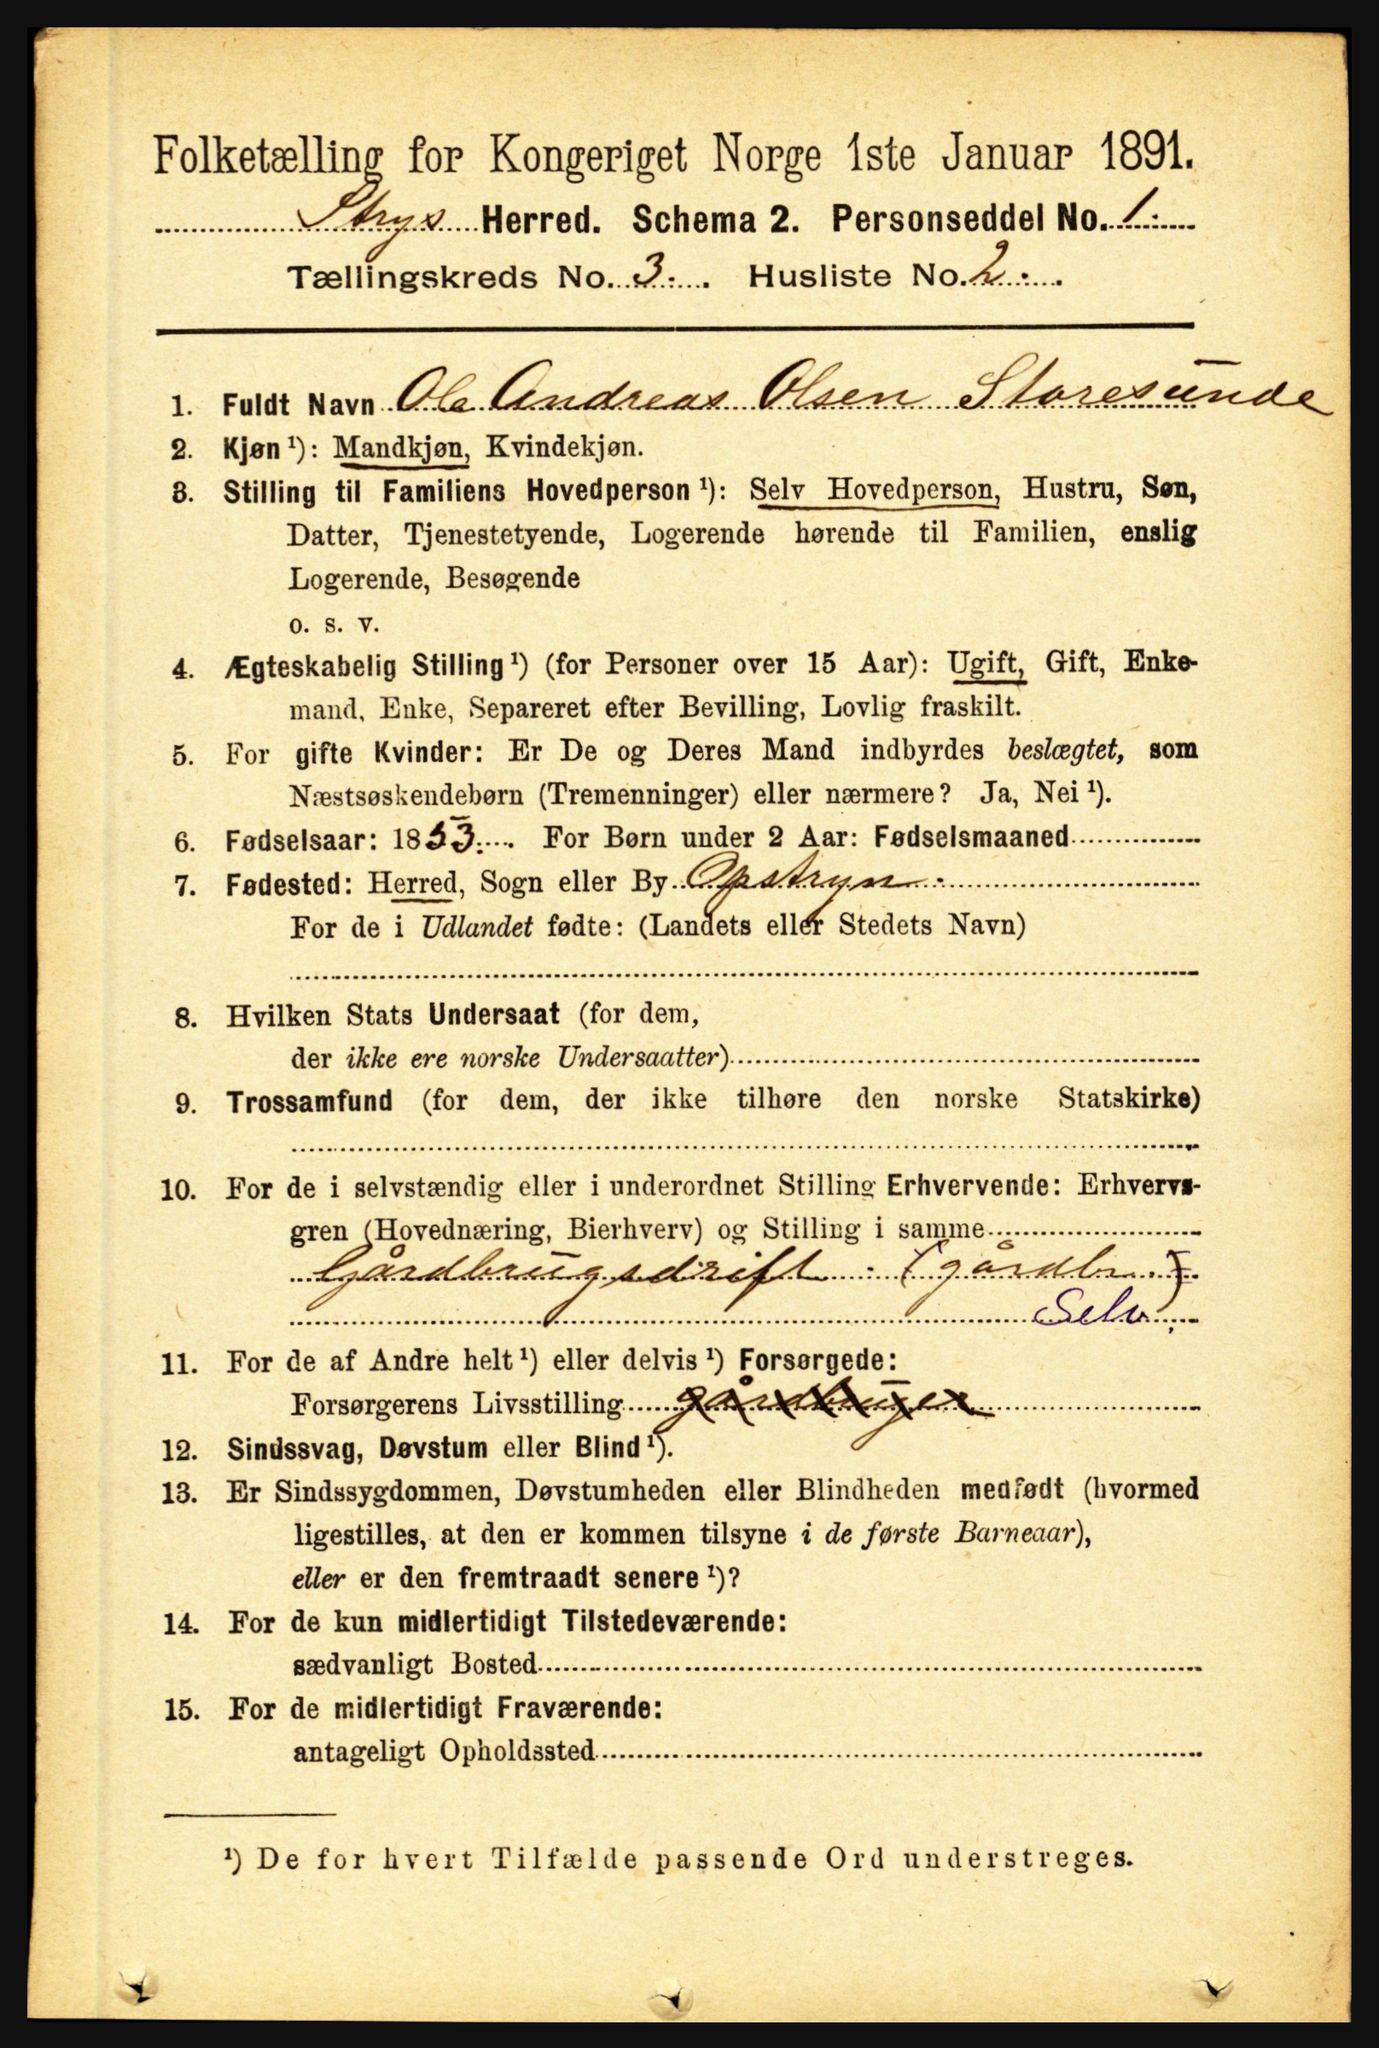 Folketælling for Kongeriget Norge 1ste Januar 1891.
Strys Herred. Schema 2. Personseddel No. 1.
Tællingskreds No. 3. Husliste No. 2.
1. Fuldt Navn Ole Andreas Olsen Storesunde
2. Kjøn ¹): Mandkjøn, Kvindekjøn.
3. Stilling til Familiens Hovedperson ¹): Selv Hovedperson, Hustru, Søn,
Datter, Tjenestetyende, Logerende hørende til Familien, enslig
Logerende, Besøgende
o. s. v.
4. Ægteskabelig Stilling ¹) (for Personer over 15 Aar): Ugift, Gift, Enke-
mand, Enke, Separeret efter Bevilling, Lovlig fraskilt.
5. For gifte Kvinder: Er De og Deres Mand indbyrdes beslægtet, som
Næstsøskendebørn (Tremenninger) eller nærmere? Ja, Nei ¹).
6. Fødselsaar: 1853. For Børn under 2 Aar: Fødselsmaaned
7. Fødested: Herred, Sogn eller By Opstryn.
For de i Udlandet fødte: (Landets eller Stedets Navn)
8. Hvilken Stats Undersaat (for dem,
der ikke ere norske Undersaatter)
9. Trossamfund (for dem, der ikke tilhøre den norske Statskirke)
10. For de i selvstændig eller i underordnet Stilling Erhvervende: Erhvervs-
gren (Hovednæring, Bierhverv) og Stilling i samme
Gårdbrugsdrift. (gårdbr.)
Selv)
11. For de af Andre helt ¹) eller delvis ¹) Forsørgede:
Forsørgerens Livsstilling gårdbruger
12. Sindssvag, Døvstum eller Blind ¹).
13. Er Sindssygdommen, Døvstumheden eller Blindheden medfødt (hvormed
ligestilles, at den er kommen tilsyne i de første Barneaar),
eller er den fremtraadt senere ¹)?
14. For de kun midlertidigt Tilstedeværende:
sædvanligt Bosted
15. For de midlertidigt Fraværende:
antageligt Opholdssted
¹) De for hvert Tilfælde passende Ord understreges.